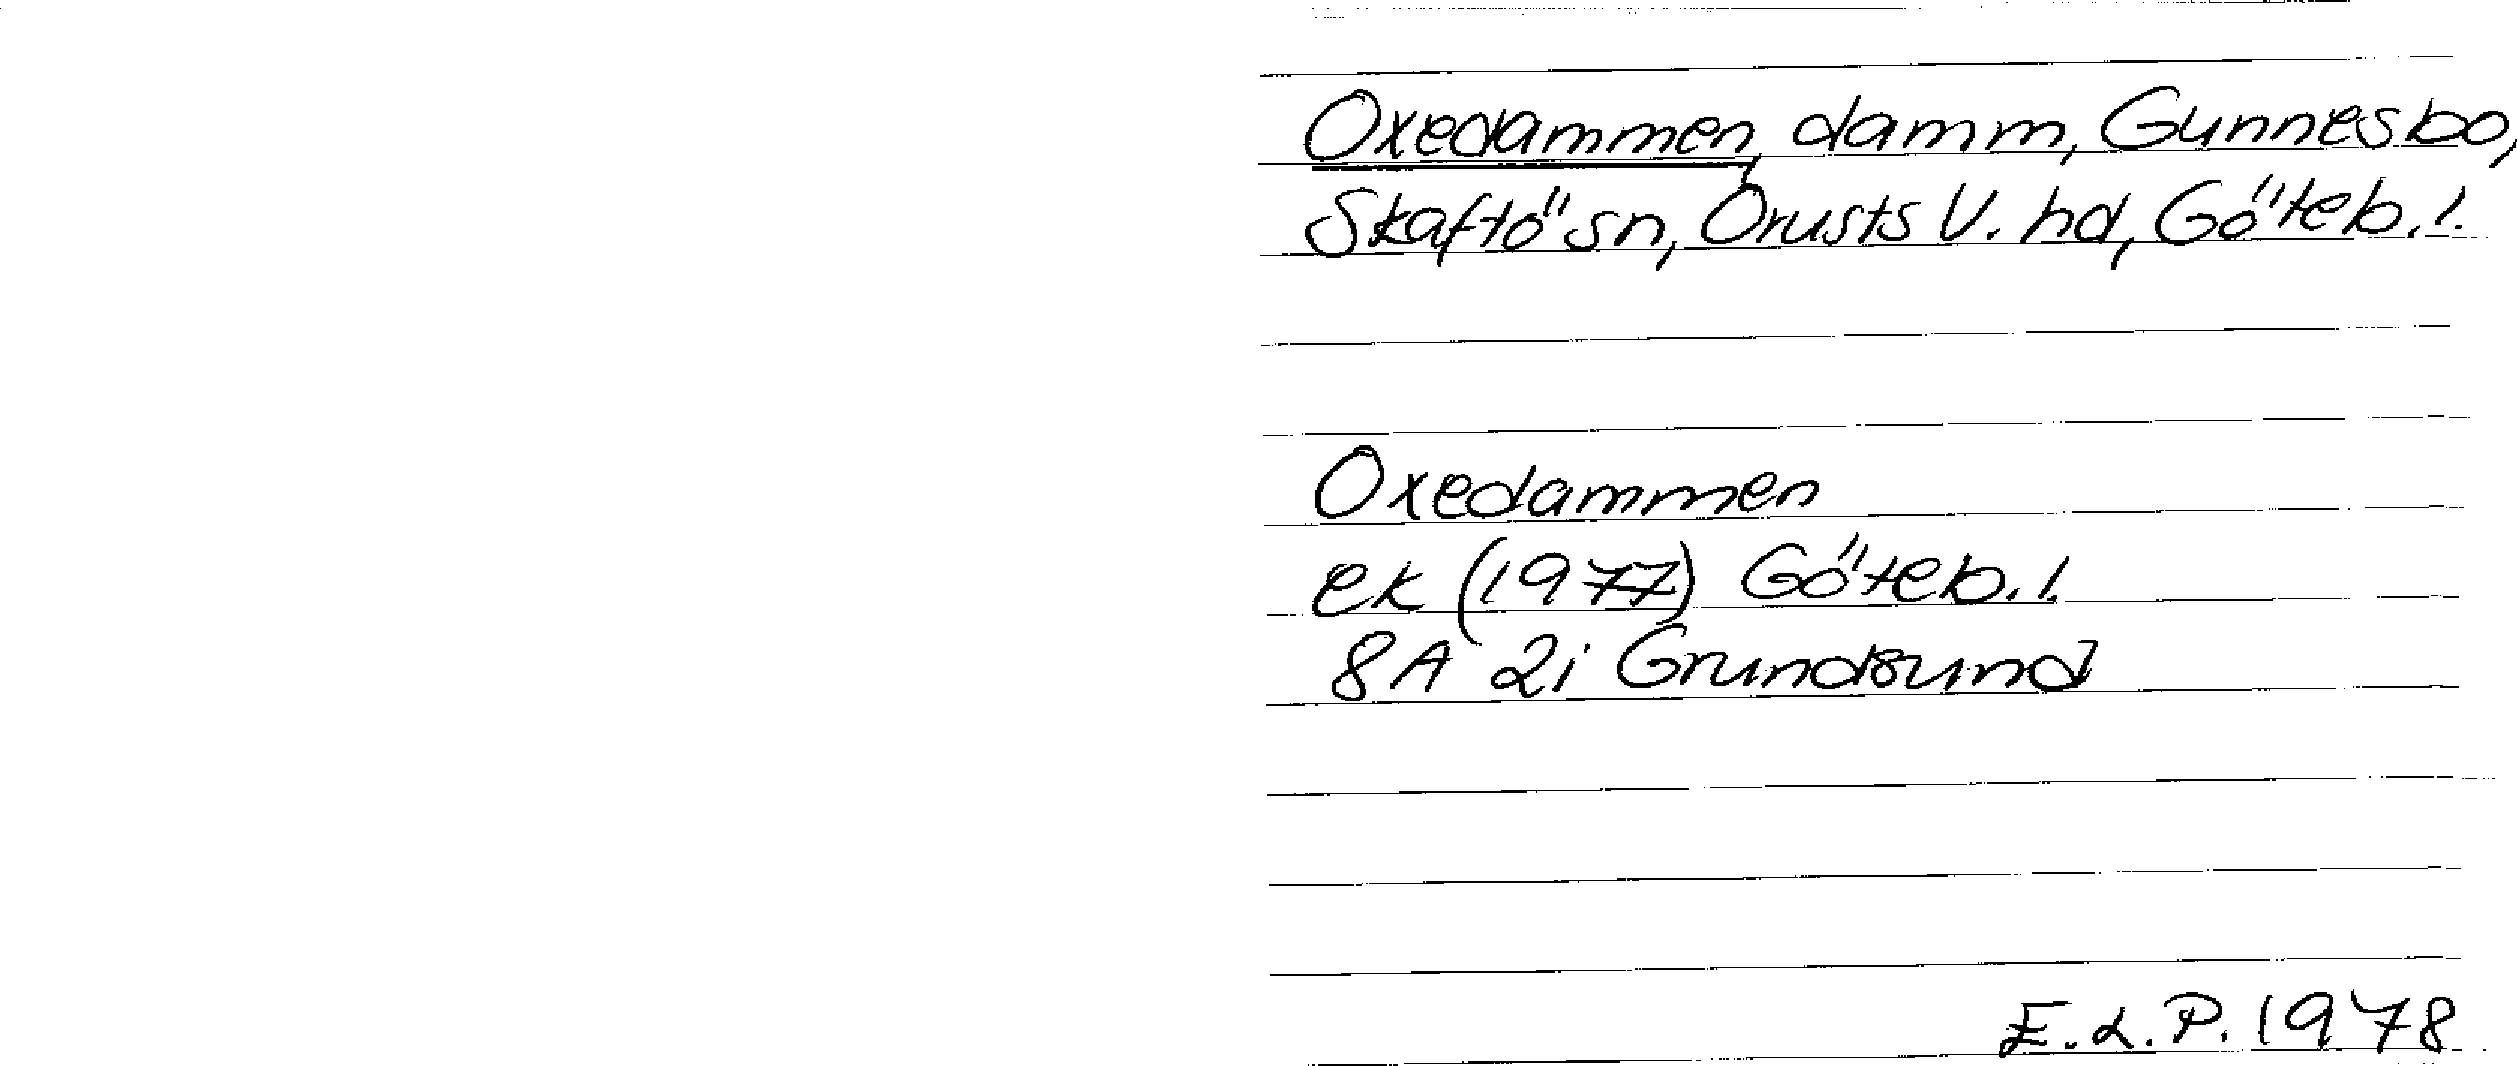 Oxedammen, damm, Gunnesbo,
Skaftö sn, Orusts V. hd, Göteb. l.
Oxedammen
ek (1977) Göteb. l.
8A 2i Grundsund
E.L.P. 1978